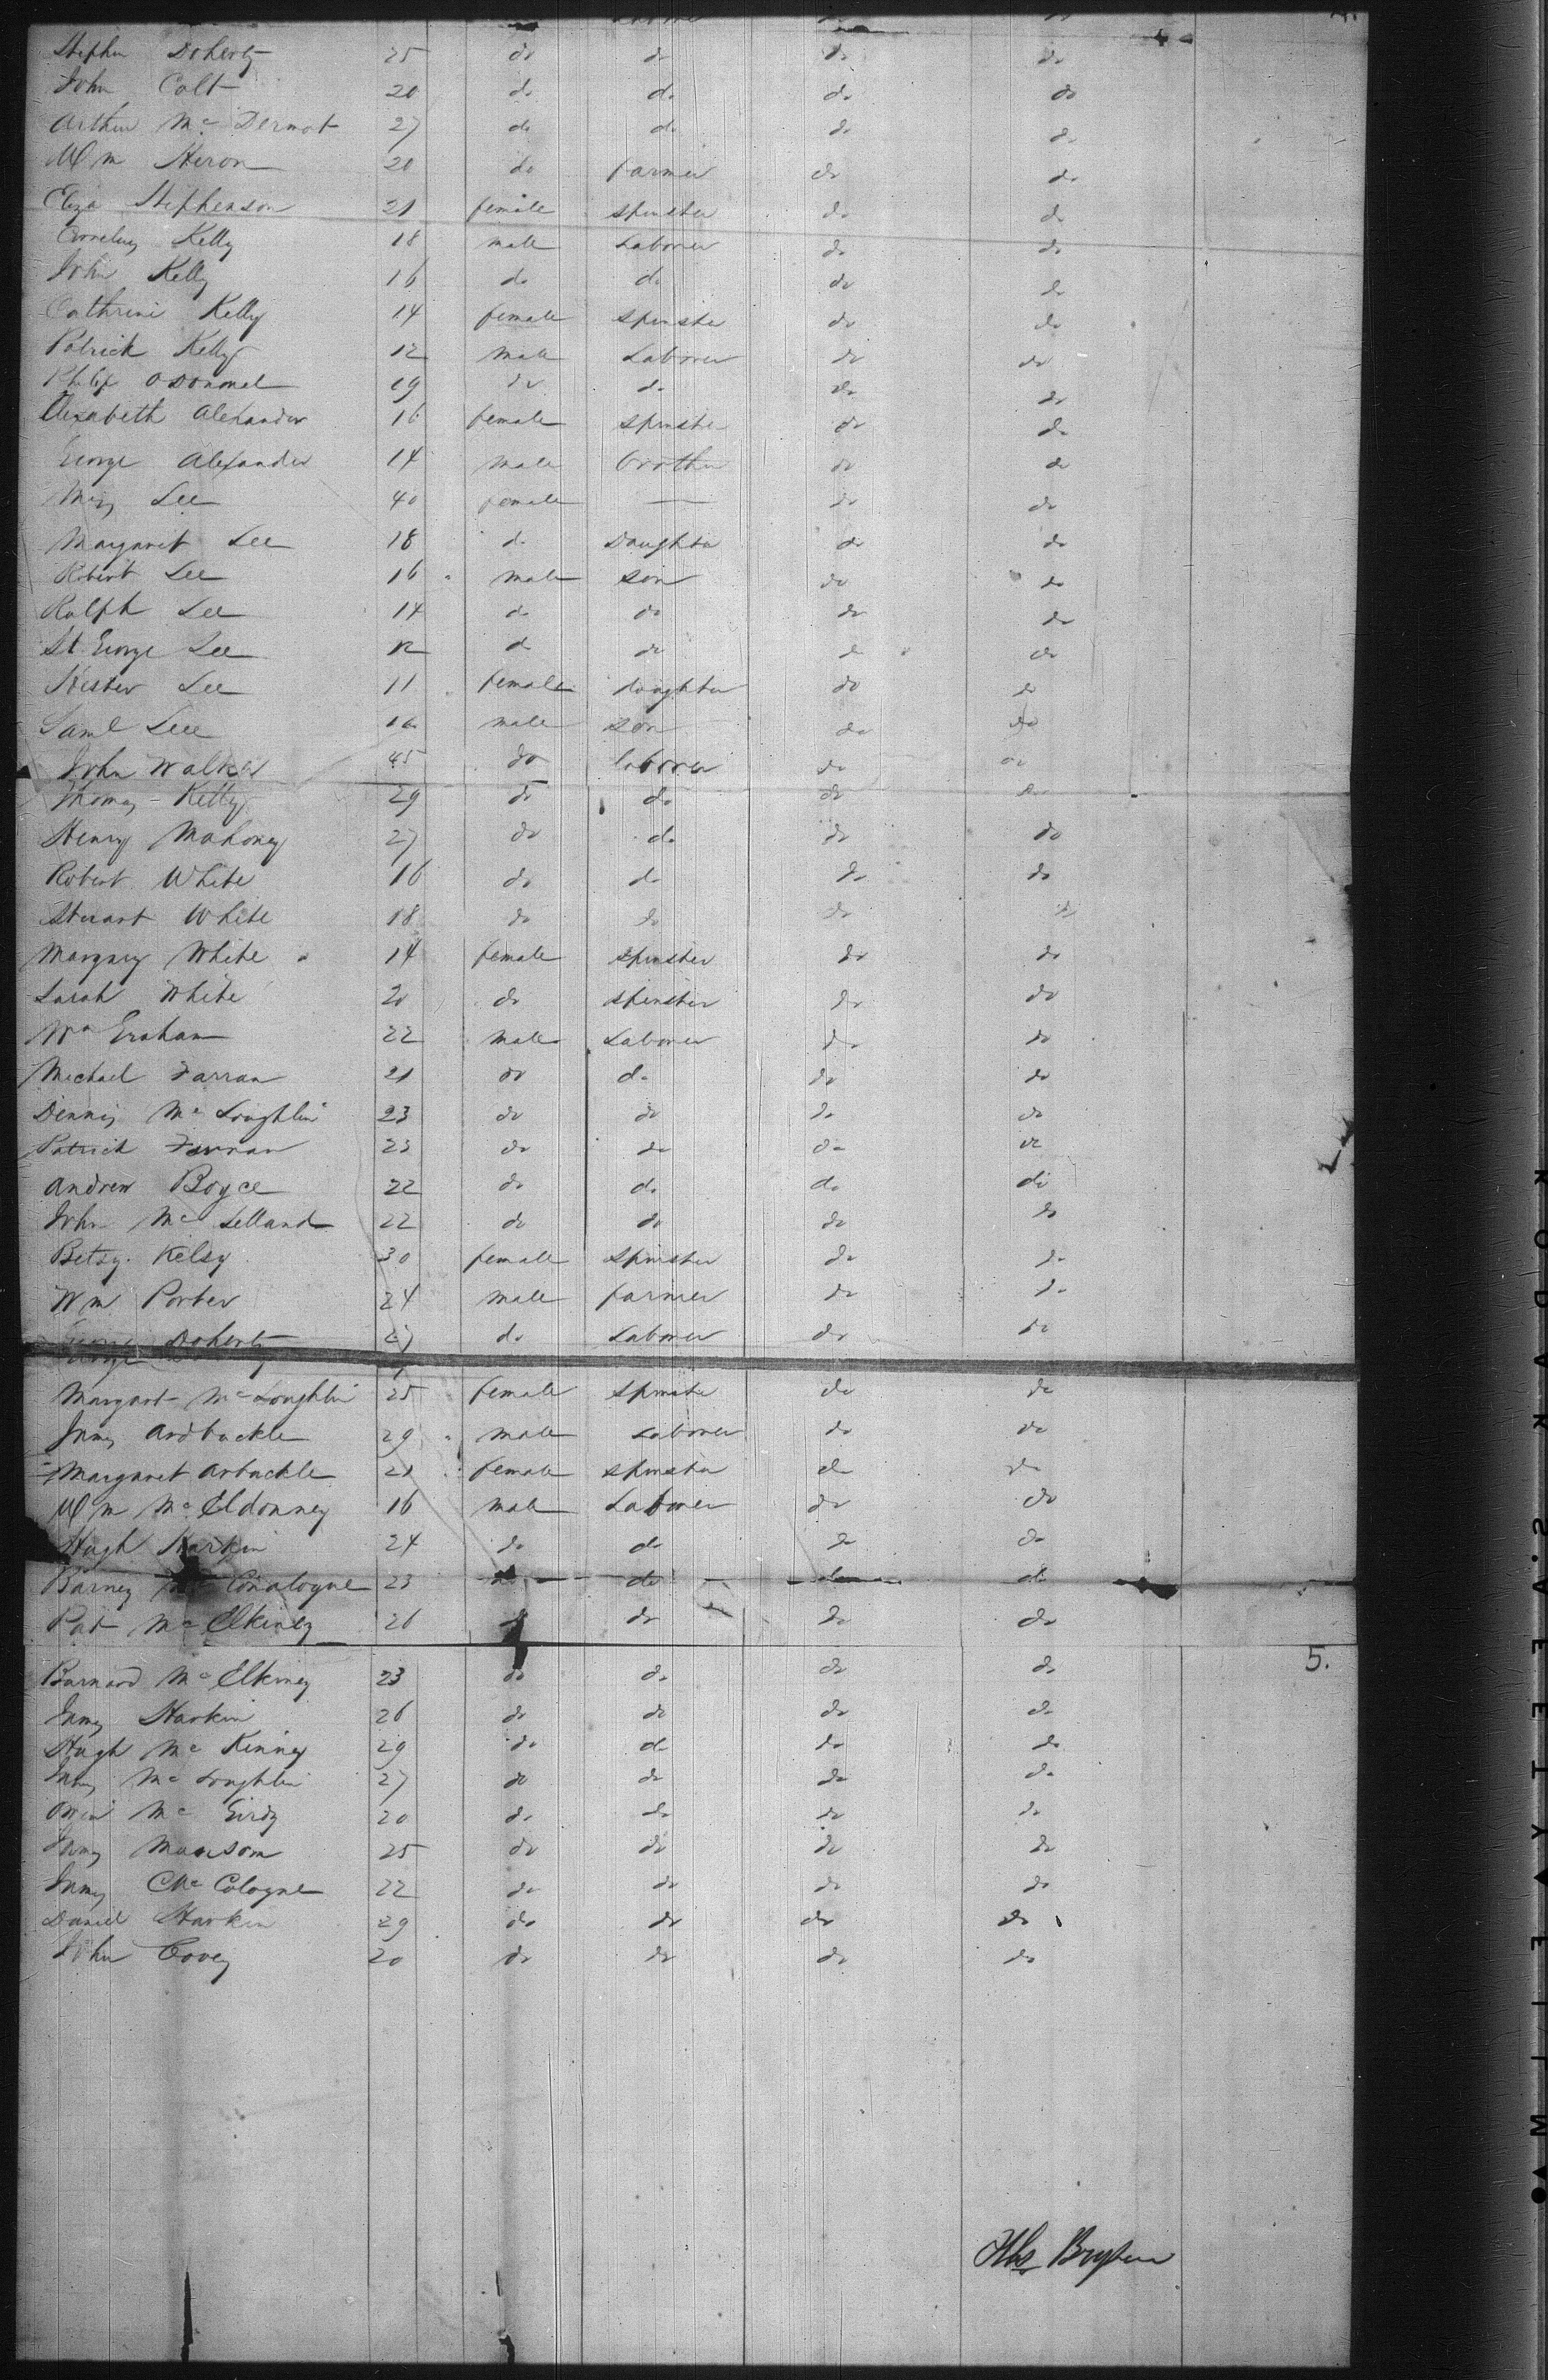 Stephen Doherty 25 do do do do
John Colt 20 do do do do
Arthur Mc Dermot 27 do do do do
Wm Heron 20 do farmer do do
Eliza Stephenson 21 female spinster do do
Cornelius Kelly 18 male Laborer do do
John Kelly 16 do do do do
Cathrine Kelly 14 female spinster do do
Patrick Kelly 12 male Laborer do do
Philip ODonnel 19 do do do do
Elizabeth Alexander 16 female spinster do do
George Alexander 14 male brother do do
Mary Lee 40 female — do do
Margaret Lee 18 do Daughter do do
Robert Lee 16 male son do do
Ralph Lee 14 do do do do
St George Lee 12 do do do do
Hester Lee 11 female daughter do do
Saml Lee male son do do
John Walker 45 do laborer do do
Thomas Kelly 29 do do do do
Henry Mahoney 27 do do do do
Robert White 16 do do do do
Stewart White 18 do do do do
Margary White 14 female spinster do do
Sarah White 20 do spinster do do
Wm Graham 22 male Laborer do do
Michael Farran 21 do do do do
Dennis Mc Loughlin 23 do do do do
Patrick Farran 23 do do do do
Andrew Boyce 22 do do do do
John Mc Lelland 22 do do do do
Betsy Kelsy 30 female Spinster do do
Wm Porter 24 male farmer do do
George Doherty 27 do Laborer do do
Margart Mc Loughlin 25 female spinster do do
James Ardbuckle 29 male Laborer do do
Margaret Arbuckle 21 female spinster do do
Wm Mc Eldonney 16 male Laborer do do
Hugh Harkin 24 do do do do
Barney Mc Conalogue 23 do do do do
Pat Mc Elkiney 26 do do do do
5.
Barnard Mc Elkiney 23 do do do do
James Harkin 26 do do do do
Hugh Mc Kinney 29 do do do do
James Mc Loughlin 27 do do do do
Owen Mc Girdy 20 do do do do
James 25 do do do do
James Mc Cologne 22 do do do do
Daniel Harkin 29 do do do do
John Covey 20 do do do do
KODAK S'AFETY